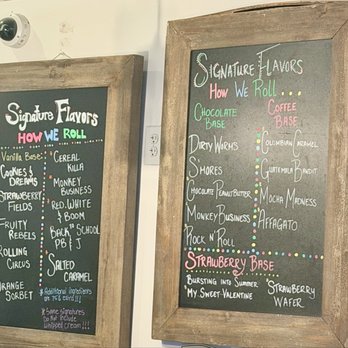 Signature Flavors
HOW WE ROLL
Vanilla Base
COOKIES &
DREAMS
STRAWBERRY
FIELDS
FRUITY
REBELS
ROLLING
CIRCUS
ORANGE
SORBET
CEREAL
KILLA
MONKEY
BUSINESS
RED, WHITE
& BOOM
BACK TO SCHOOL
PB & J
SALTED
CARAMEL
* Additional ingredients
* Some signatures
Do not include
whipped cream!!!
SIGNATURE FLAVORS
HOW WE ROLL
CHOCOLATE
BASE
DIRTY WORMS
S'MORES
CHOCOLATE PEANUTBUTTER
MONKEY BUSINESS
ROCK N' ROLL
COFFEE
BASE
COLUMBIAN CARAMEL
GUATEMALA BANDIT
MOCHA MADNESS
AFFAGATO
STRAWBERRY BASE
BURSTING INTO SUMMER
MY SWEET VALENTINE
STRAWBERRY
WAFER